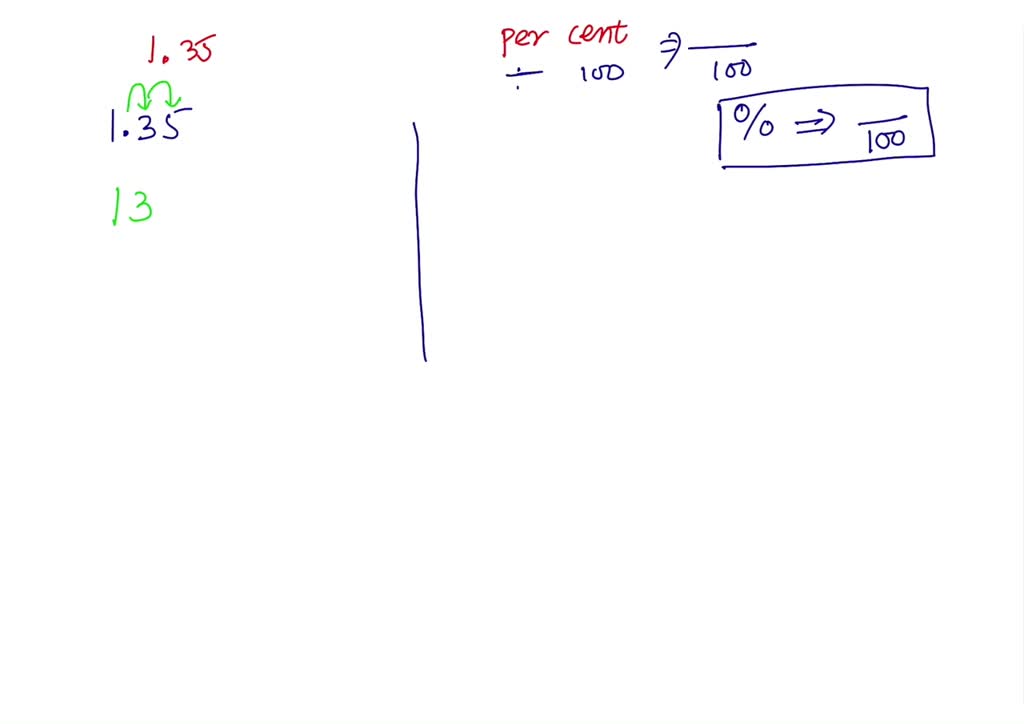 1.35
1.35
13
per cent ⇒ __/100
÷ 100
% ⇒ __/100